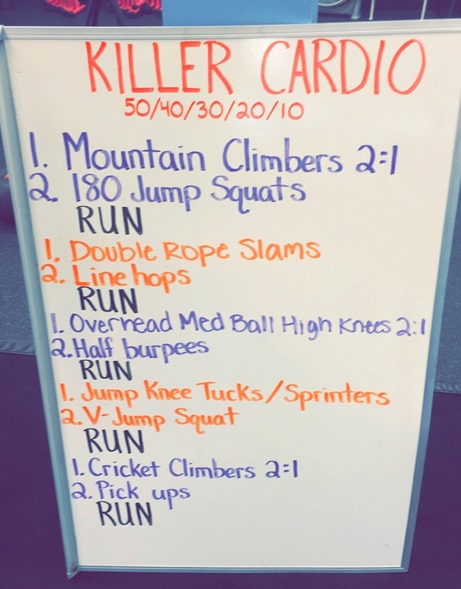 KILLER CARDIO
50/40/30/20/10
1. Mountain Climbers 2:1
2. 180 Jump Squats
RUN
1. Double Rope Slams
2. Line hops
RUN
1. Overhead Med Ball High Knees 2:1
2. Half burpees
RUN
1. Jump Knee Tucks/Sprinters
2. V-Jump Squat
RUN
1. Cricket Climbers 2:1
2. Pick ups
RUN